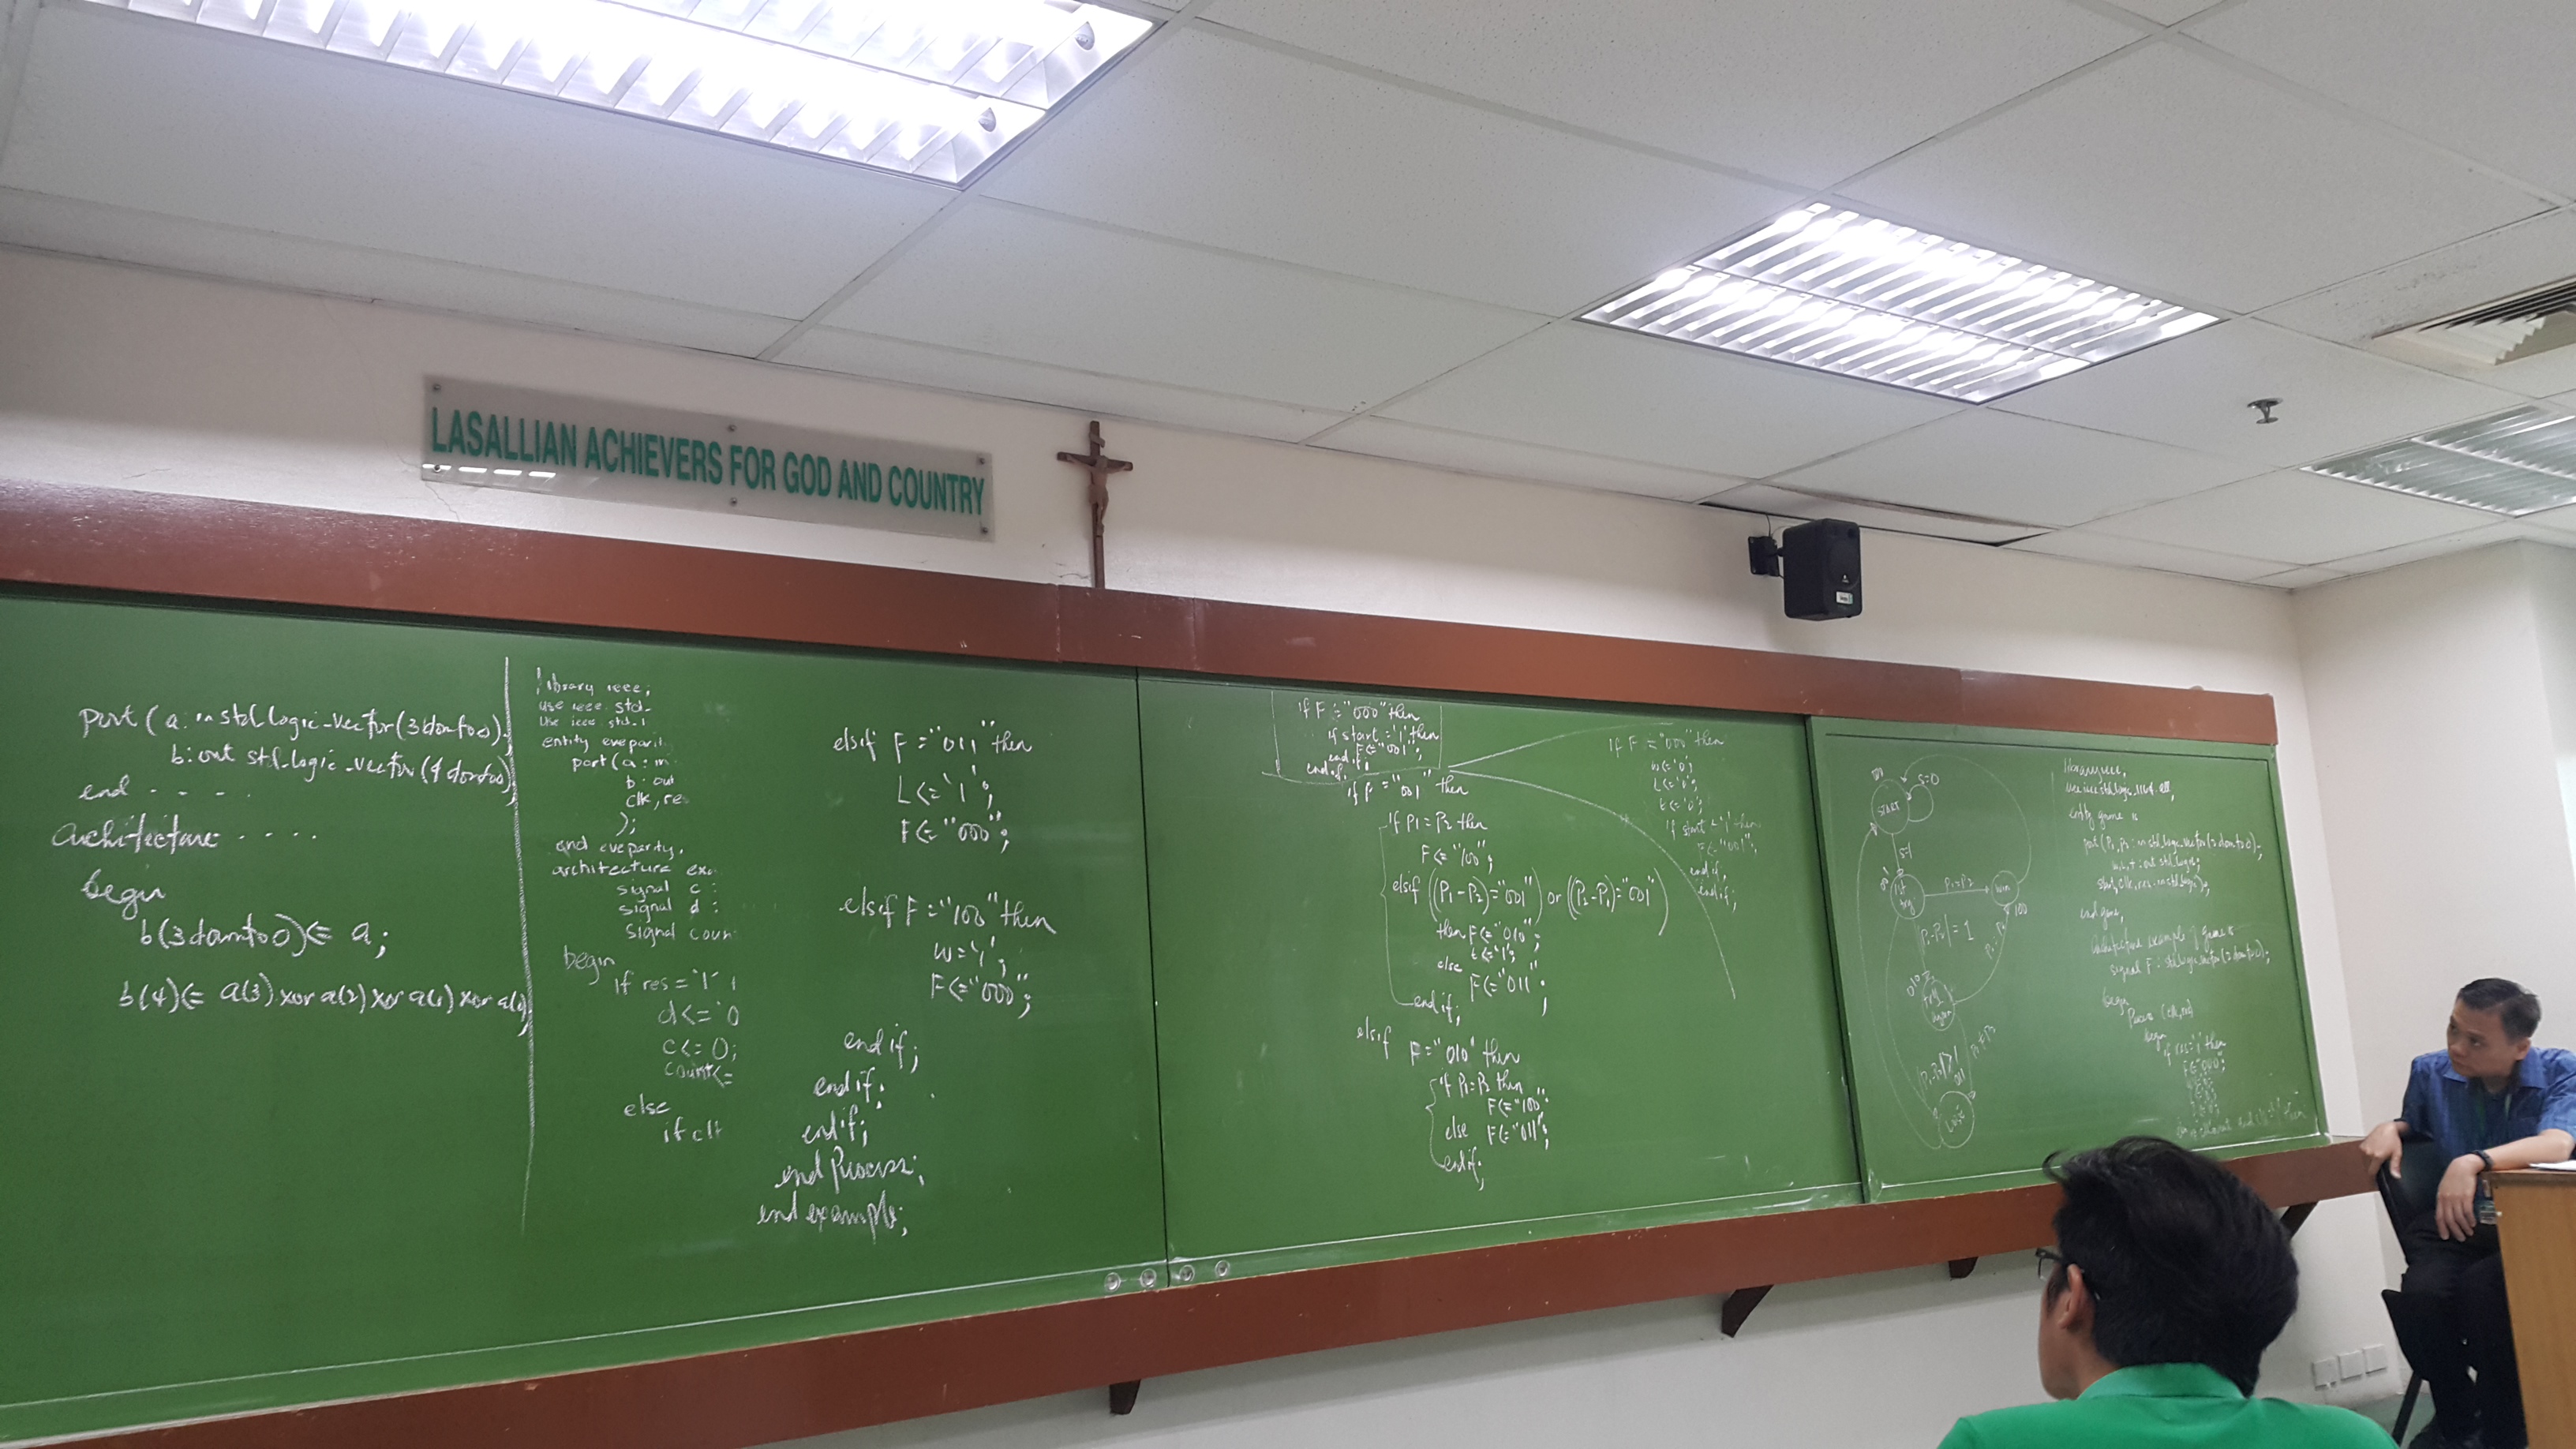 LASALLIAN ACHIEVERS FOR GOD AND COUNTRY
port ( a: in std_logic_vector(3 downto 0);
b: out std_logic_vector(4 downto 0)
end - - - -
architecture - - - -
begin
b(3 downto 0) <= a;
b(4) <= a(3) xor a(2) xor a(1) xor a(0)
library ieee;
use ieee. std_
use ieee std_l
entity eveparit
port ( a : in
b : out
clk, res
);
end eveparity,
architecture exa
signal c :
signal d :
signal coun
begin
if res = '1'
d <= '0
c <= 0;
count <=
else
if clk
elsif F = "011" then
L <= '1';
F <= "000";
elsif F = "100" then
w = '1';
F <= "000";
end if;
end if;
end if;
end process;
end example;
if F = "000" then
if start = '1' then
F <= "001";
end if;
end if;
if F = "001" then
if P1 = P2 then
F <= "100";
elsif ((P1 - P2) = "001") or ((P2 - P1) = "001")
then F <= "010";
t <= '1';
else
F <= "011";
end if;
elsif
F = "010" then
if P1 = P3 then
F <= "100";
else F <= "011";
end if;
if F = "000" then
w <= '0';
L <= '0';
t <= '0';
if start = '1' then
F <= "001";
end if;
end if;
START
S=0
S=1
1st try
P1=P2
win
100
|P1-P2| = 1
010
try again
|P1-P2|>1
011
lose
library ieee;
use ieee.std_logic_1164.all;
entity game is
port (P1, P2 : in std_logic_vector(2 downto 0);
w, L, t : out std_logic;
start, clk, res : in std_logic);
end game;
architecture example of game is
signal F : std_logic_vector(2 downto 0);
begin
process (clk, res)
begin
if res='1' then
F <= "000";